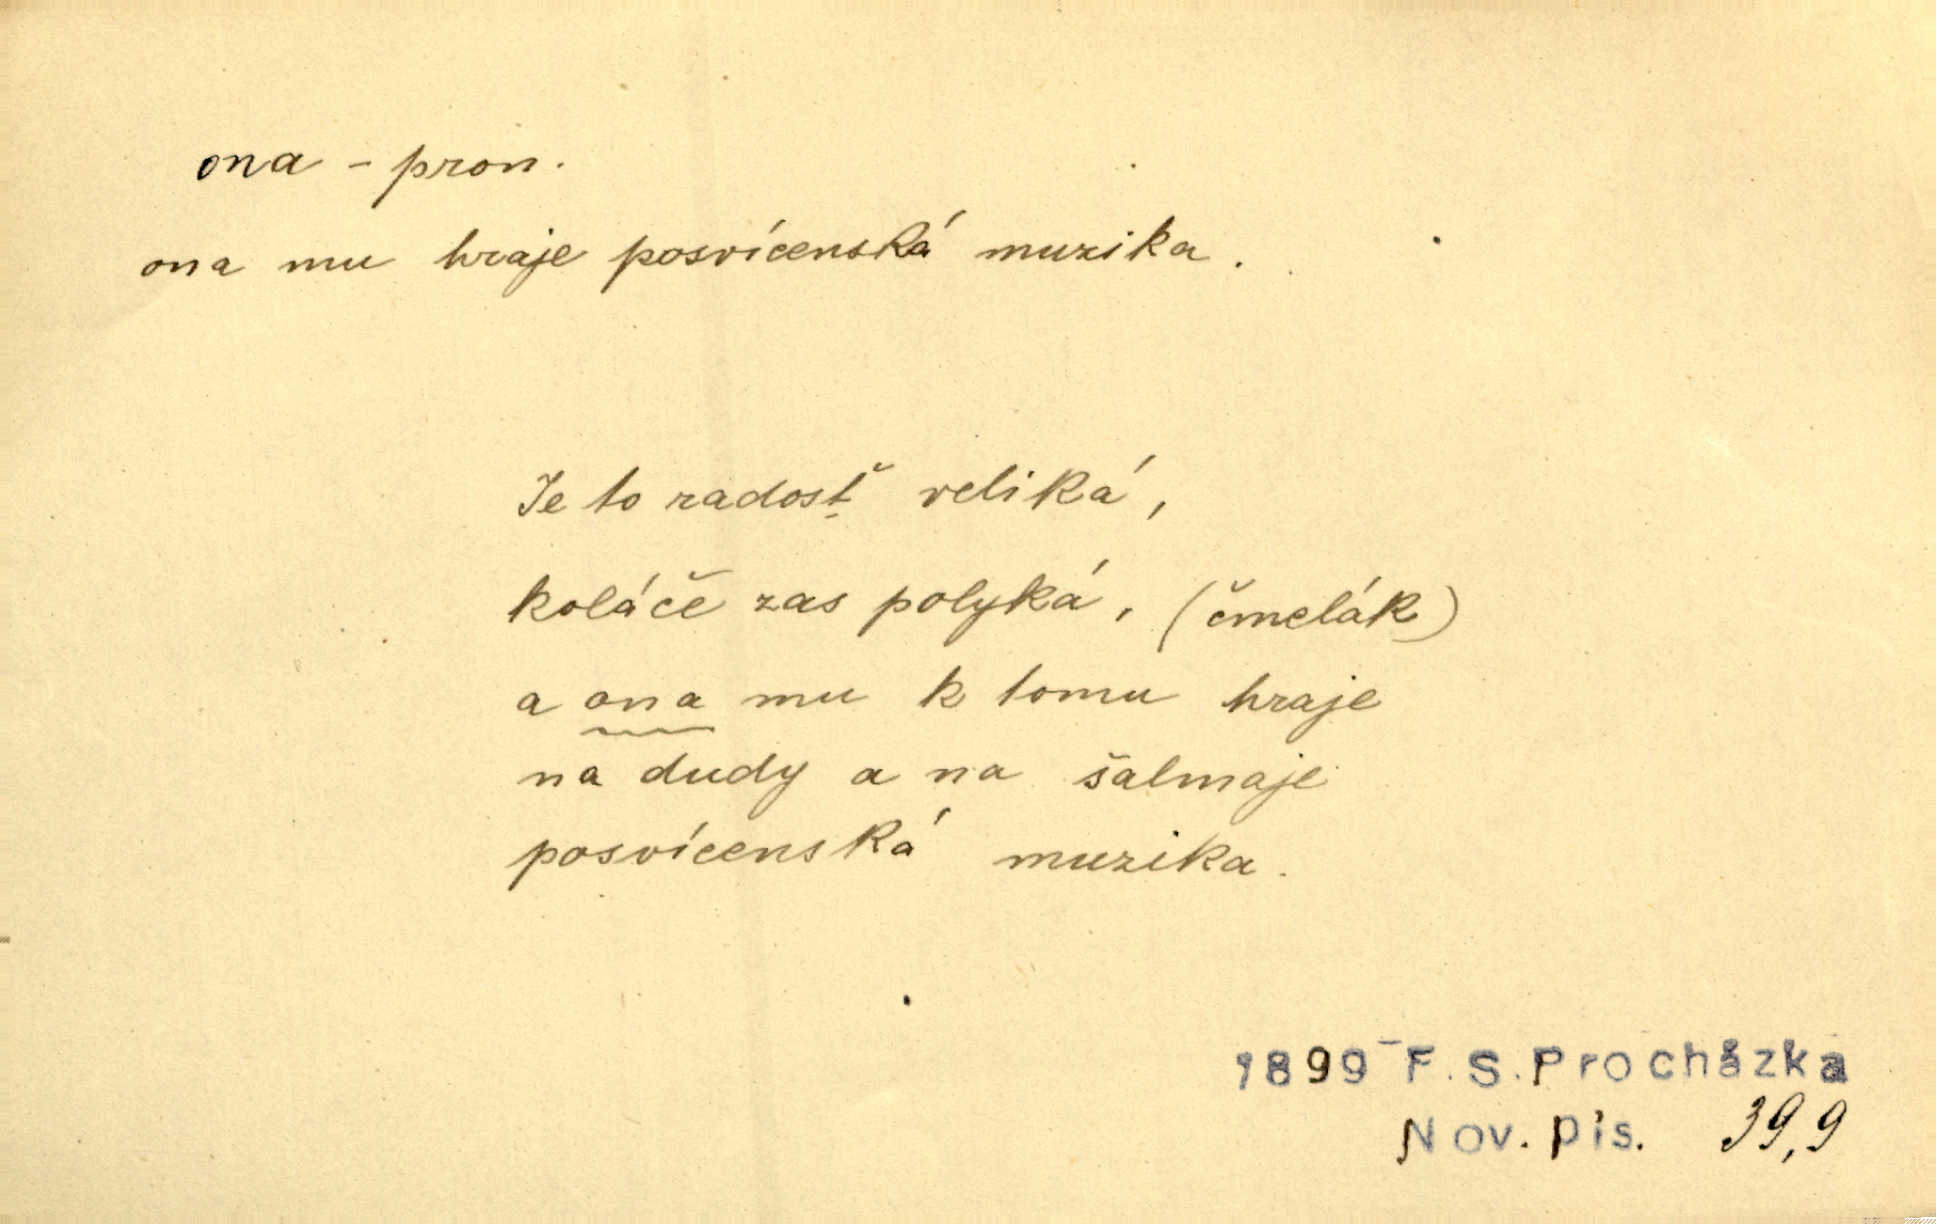 ona - pron.
ona mu hraje posvícenská muzika.
Je to radosť veliká,
koláče zas polyká, (čmelák)
a ona mu k tomu hraje
na dudy a na šalmaje
posvícenská muzika.
1899 - F. S. Procházka
Nov. pís. 39,9